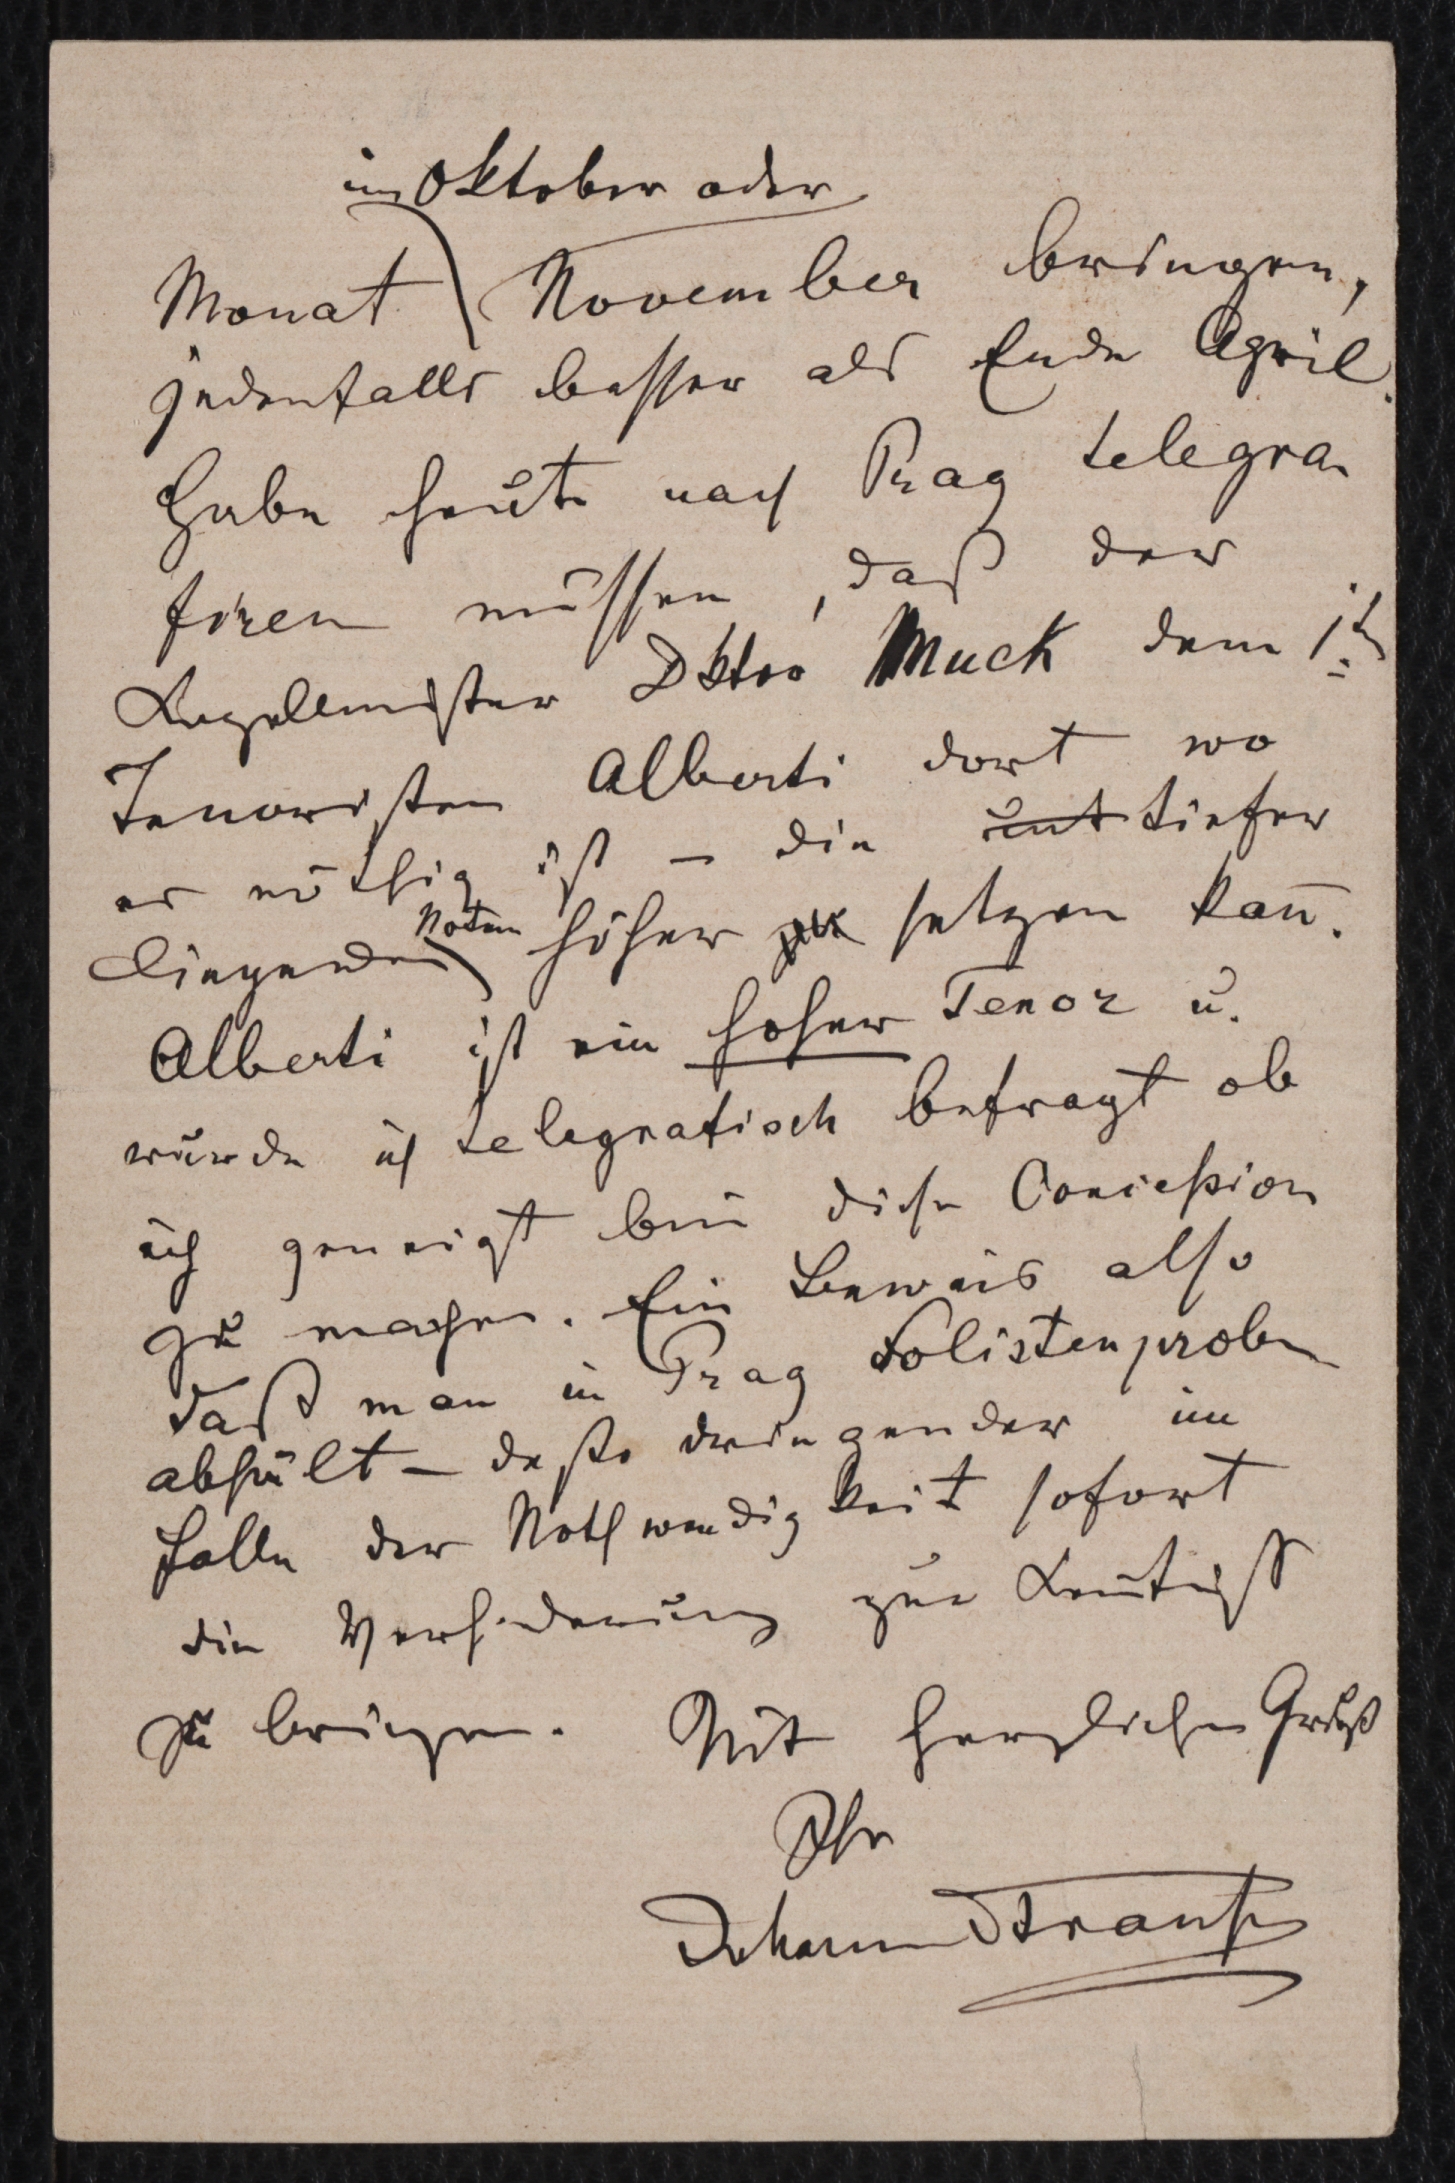 im Oktober oder
Monat November bringen,
jedenfalls besser als Ende April.
Habe heute nach Prag telegra
firen müssen, daß der
Kapellmeister Dktor Muck dem 1t.
Tenoristen Alberti dort wo
es nöthig ist – die unt tiefer
liegenden Noten höher zu setzen kan̄.
Alberti ist ein hoher Tenor u.
wurde ich telegrafisch befragt ob
ich geneigt bin diese Concession
zu machen. Ein Beweis also
daß man in Prag Solistenproben
abhält – desto dringender im
Falle der Nothwendigkeit sofort
die Verhinderung zur Kentniß
zu bringen. Mit herzlichem Gruß
Ihr
Johann Strauß